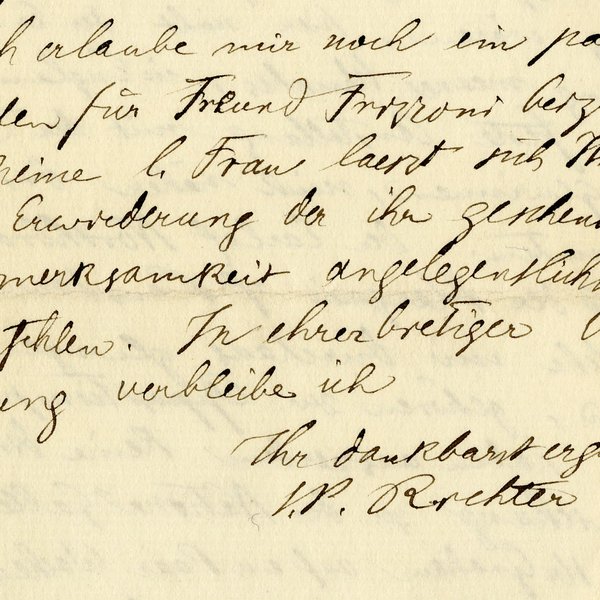 h erlaube mir noch ein pa
den für Freund Frizzoni beiz
eine l. Frau laesst sich Ih
Erwiderung der ihr geschen
merksamkeit angelegentlichs
fehlen In ehrerbietiger
ung verbleibe ich
Ihr dankbarst erg
J.P. Richter